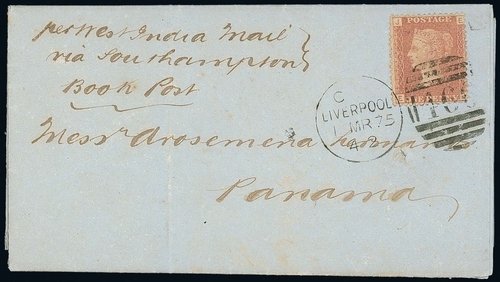 per West India Mail
via Southampton
Book Post
Messrs Arosemena Hermanos
Panama
J E
POSTAGE
E
C
LIVERPOOL
1 MR 75